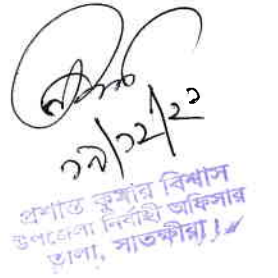 ১৯/১২/২১
প্রশান্ত কুমার বিশ্বাস
উপজেলা নির্বাহী অফিসার
তালা, সাতক্ষীরা।